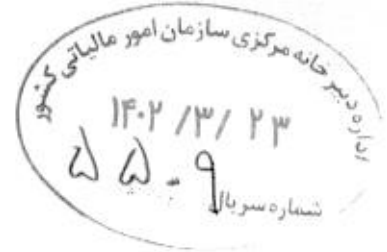 اداره دبیرخانه مرکزی سازمان امور مالیاتی کشور
۱۴۰۲ /۳/ ۲۳
۵۵۰۹
شماره سریال